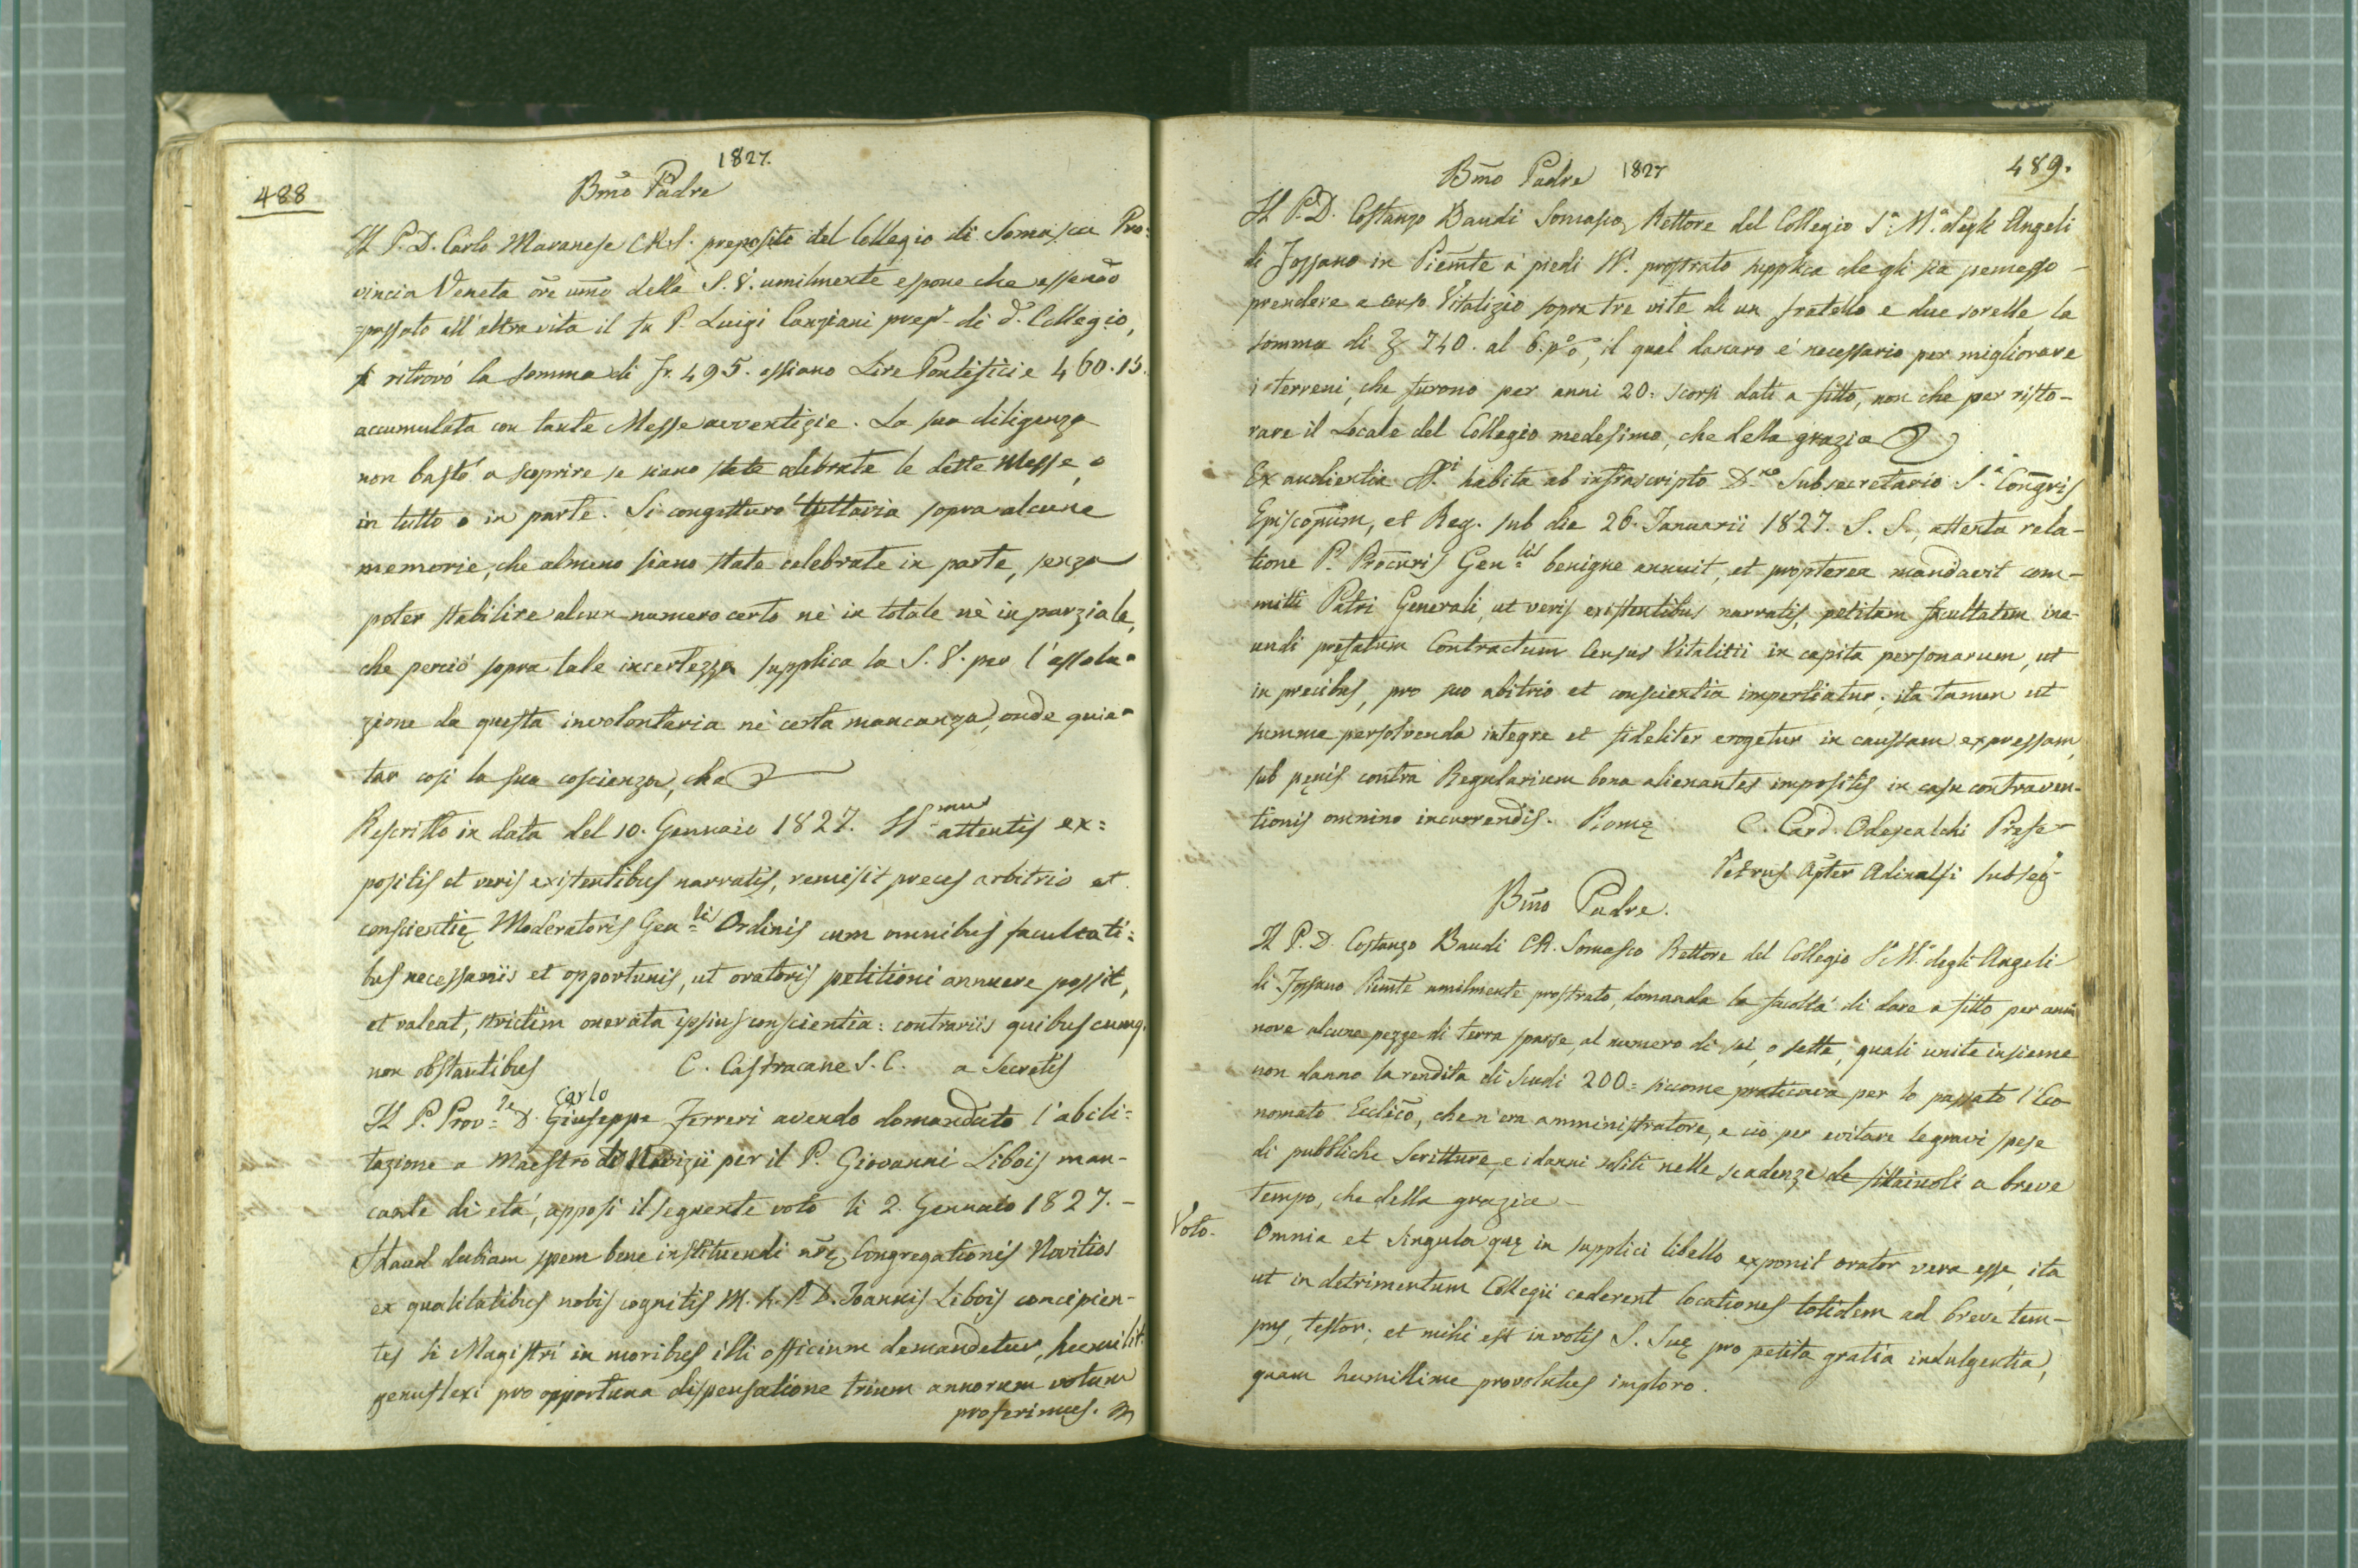 488
1827.
Bm̃o Padre
Il P. D. Carlo Maranese C.R.S. preposito del Collegio di Somasca Pro=
vincia Veneta ore um̃o della S. V. umilmente espone che essendo
passato all'altra vita il fu P. Luigi Canziani prep. di d. Collegio,
si ritrovò la somma di Fr. 495. essiano Lire Pontificie 460.15.
accumulata con tante Messe avventizie. La sua diligenza
non bastò a scoprire se siano state celebrate le dette Messe, o
in tutto o in parte. Si congetturo tuttavia sopra alcune
memorie, che almeno siano state celebrate in parte, senza
poter stabilire alcun numero certo nè in totale nè in parziale,
che perciò sopra tale incertezza supplica la S. V. per l'assolu=
zione da questa involontaria nè certa mancanza, onde quie=
tar così la sua coscienza, che
Rescritto in data del 10. Gennaio 1827. SSmus attentis ex=
positis et veris existentibus narratis, remisit preces arbitrio et
conscientię Moderatoris Genlis Ordinis cum omnibus facultati=
bus necessariis et opportunis, ut oratoris petitioni annuere possit,
et valeat, strictim onerata ipsius conscientia: contrariis quibuscumq.
non obstantibus C. Castracane S. C. a Secretis
Il P. Provle D. Giuseppe Carlo Ferreri avendo domandato l'abili=
tazione a Maestro di Novizii per il P. Giovanni Libois man-
cante di età, apposi il seguente voto li 2. Gennaio 1827. -
Haud dubiam spem bene instituendi nr̃ę Congregationis Novitios
ex qualitatibus nobis cognitis M. R. P. D. Joannis Libois concipien-
tes si Magistri in moribus illi officium demandetur, humilit.
genuflexi pro opportuna dispensatione trium annorum votum
proferimus.
489.
Bm̃o Padre 1827
Il P. D. Costanzo Baudi Somasco, Rettore del Collegio S. M. degli Angeli
di Fossano in Piem̃te a' piedi SS. prostrato supplica che gli sia permesso
prendere a censo Vitalizio sopra tre vite di un fratello e due sorelle la
somma di 740. al 6. p%, il qual danaro è necessario per migliorare
i terreni, che furono per anni 20. scorsi dati a fitto, non che per risto-
rare il Locale del Collegio medesimo, che della grazia
Ex audientia SSi habita ab infrascripto Dno Subsecretario S. Congris
Episcoporum, et Reg. sub die 26. Januarii 1827. S. S., attenta rela-
tione P. Procuris Genlis benigne annuit, et propterea mandavit com-
mitti Patri Generali, ut veris existentibus narratis, petitam facultatem ine-
undi prefatum Contractum Census Vitalitii in capita personarum, ut
in precibus, pro suo abitrio et conscientia impertiatur, ita tamen ut
summa persolvenda integre et fideliter erogetur in caussam expressam,
sub pęnis contra Regularium bona alienantes impositis in casu contraven-
tionis omnino incurrendis. Romę C. Card. Odescalchi Prefe-
Petrus Adinolfi subseg
Bm̃o Padre.
Il P. D. Costanzo Baudi C.R. Somasco Rettore del Collegio S. M. degli Angeli
di Fossano Piem̃te umilmente prostrato, domanda la facoltà di dare a fitto per anni
nove alcune pezze di terra sparse, al numero di sei, o sette, quali unite insieme
non danno la rendita di Scudi 200= siccome praticava per lo passato l'Eco
nomato Ecclico, che n'era amministratore, e ciò per evitare le gravi spese
di pubbliche Scritture, e i danni soliti nelle scadenze de fittaiuoli a breve
tempo, che della grazia
Voto. Omnia et singula quę in supplici libello exponit orator vera esse, ita
ut in detrimentum Collegii cederent locationes totidem ad breve tem-
pus, testor; et mihi est in votis S. Suę pro petita gratia indulgentia,
quam humillime provolutus imploro.